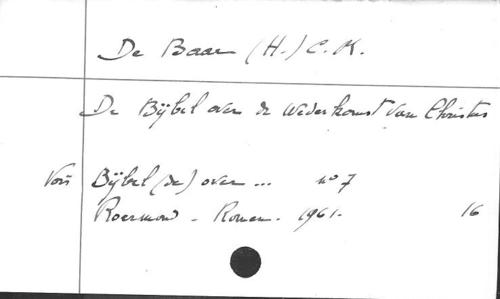 De Baar (H.) C.K.
De Bijbel over de wederkomst van Christus
Voir Bijbel (de) over ... n° 7
Roermond - Romen - 1961. 16